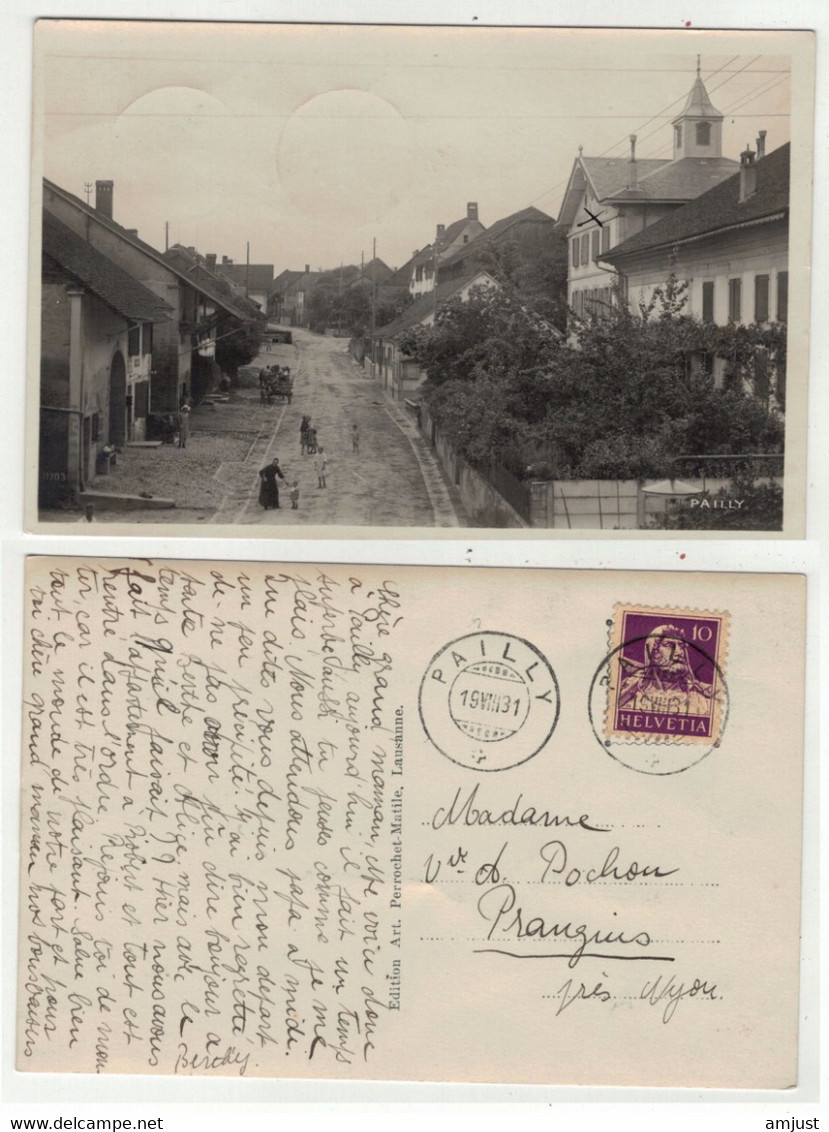 11703
PAILLY
Chère grand maman, Me voici donc
à Pailly aujourd'hui il fait un temps
superbe aussi tu penses comme je me
plais. Nous attendons papa à midi.
Que dites vous depuis mon départ
un peu précipité. J'ai bien regretté
de ne pas pu dire bonjour à
tante Berthe et Alice, mais avec le
temps qu'il faisait ?? Hier nous avons
fait l'appartement à Robert et tout est
rentré dans l'ordre. Réjouis toi de mon
car il est très plaisant. Salue bien
tout le monde de notre part et pour
toi chère grand maman nos bons baisers
Edition Art. Perrochet-Matile, Lausanne.
PAILLY
19 VIII 31
PAILLY
10
HELVETIA
Madame
Vve A. Pochon
Prangins
près Nyon.
http://www.delcampe.net
amjust